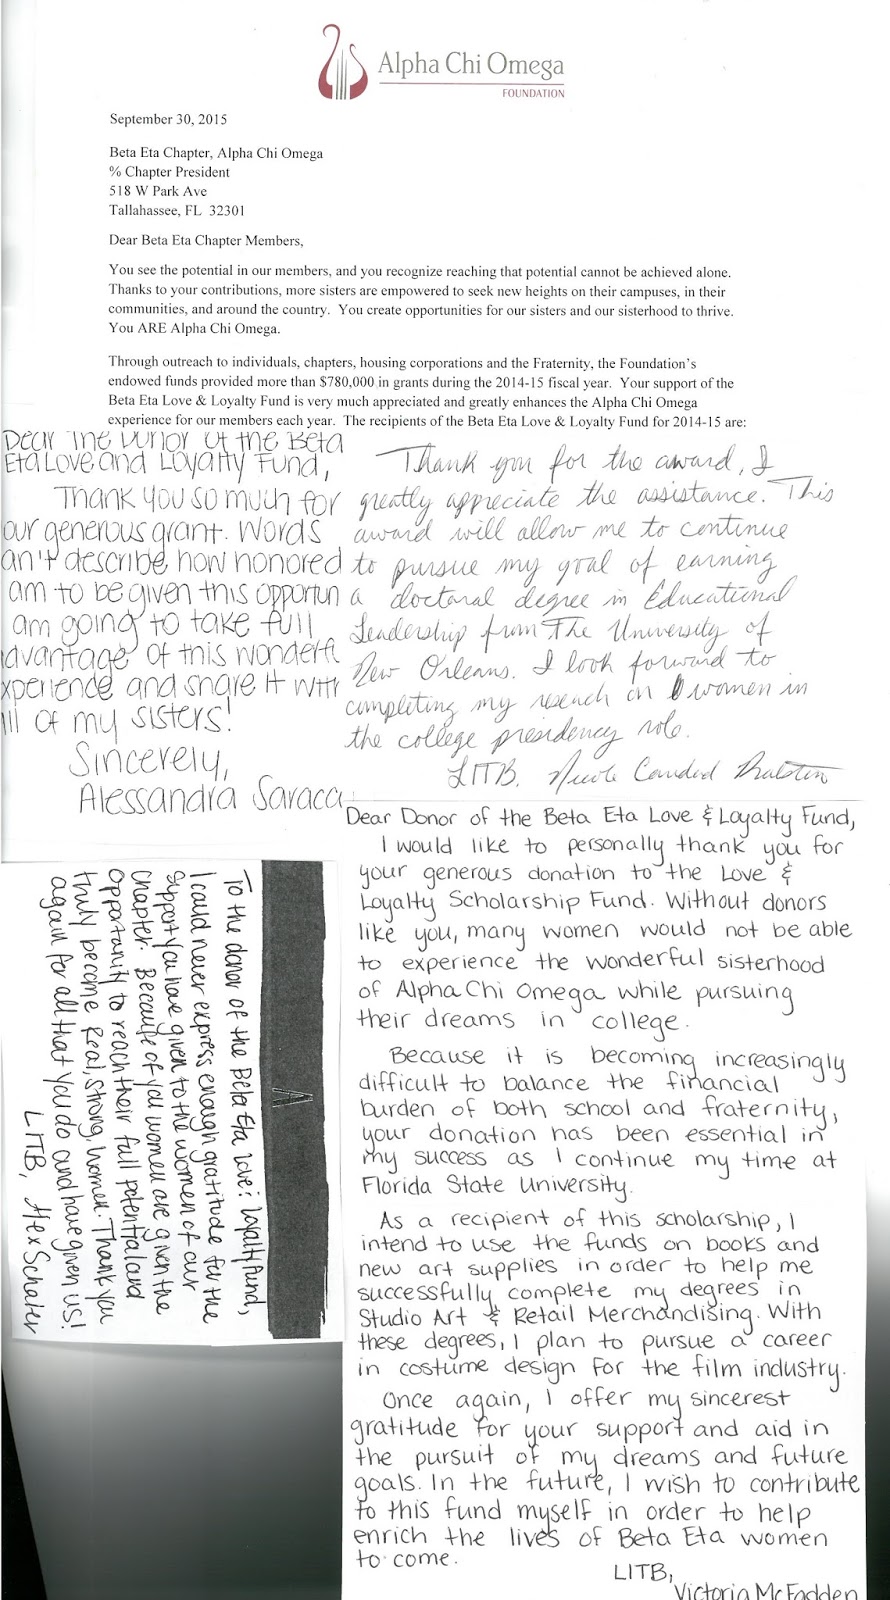 Alpha Chi Omega
FOUNDATION
September 30, 2015
Beta Eta Chapter, Alpha Chi Omega
% Chapter President
518 W Park Ave
Tallahassee, FL 32301
Dear Beta Eta Chapter Members,
You see the potential in our members, and you recognize reaching that potential cannot be achieved alone.
Thanks to your contributions, more sisters are empowered to seek new heights on their campuses, in their
communities, and around the country. You create opportunities for our sisters and our sisterhood to thrive.
You ARE Alpha Chi Omega.
Through outreach to individuals, chapters, housing corporations and the Fraternity, the Foundation's
endowed funds provided more than $780,000 in grants during the 2014-15 fiscal year. Your support of the
Beta Eta Love & Loyalty Fund is very much appreciated and greatly enhances the Alpha Chi Omega
experience for our members each year. The recipients of the Beta Eta Love & Loyalty Fund for 2014-15 are:
Dear The Donor of the Beta
Eta Love and Loyalty Fund,
Thank you so much for
our generous grant. Words
an't describe how honored
am to be given this opportun
am going to take full
dvantage of this wonderf
xperience and share it with
ll of my sisters!
Sincerely,
Alessandra Saraca
Thank you for the award, I
greatly appreciate the assistance. This
award will allow me to continue
to pursue my goal of earning
a doctoral degree in Educational
Leadership from The University of
New Orleans. I look forward to
completing my reseach on women in
the college presidency role.
LITB, Nicole Ralston
To the donor of the Beta Eta Love & Loyalty Fund,
I could never express enough gratitude for the
support you have given to the women of our
Chapter. Because of you women are given the
opportunity to reach their full potential and
truly become Real, Strong, Women. Thank you
again for all that you do and have given us!
LITB, Alex Schafer
A
Dear Donor of the Beta Eta Love & Loyalty Fund,
I would like to personally thank you for
your generous donation to the Love &
Loyalty Scholarship Fund. Without donors
like you, many women would not be able
to experience the wonderful sisterhood
of Alpha Chi Omega while pursuing
their dreams in college.
Because it is becoming increasingly
difficult to balance the financial
burden of both school and fraternity,
your donation has been essential in
my success as I continue my time at
Florida State University.
As a recipient of this scholarship, I
intend to use the funds on books and
new art supplies in order to help me
successfully complete my degrees in
Studio Art & Retail Merchandising. With
these degrees, I plan to pursue a career
in costume design for the film industry.
Once again, I offer my sincerest
gratitude for your support and aid in
the pursuit of my dreams and future
goals. In the future, I wish to contribute
to this fund myself in order to help
enrich the lives of Beta Eta women
to come.
LITB,
Victoria McFadden